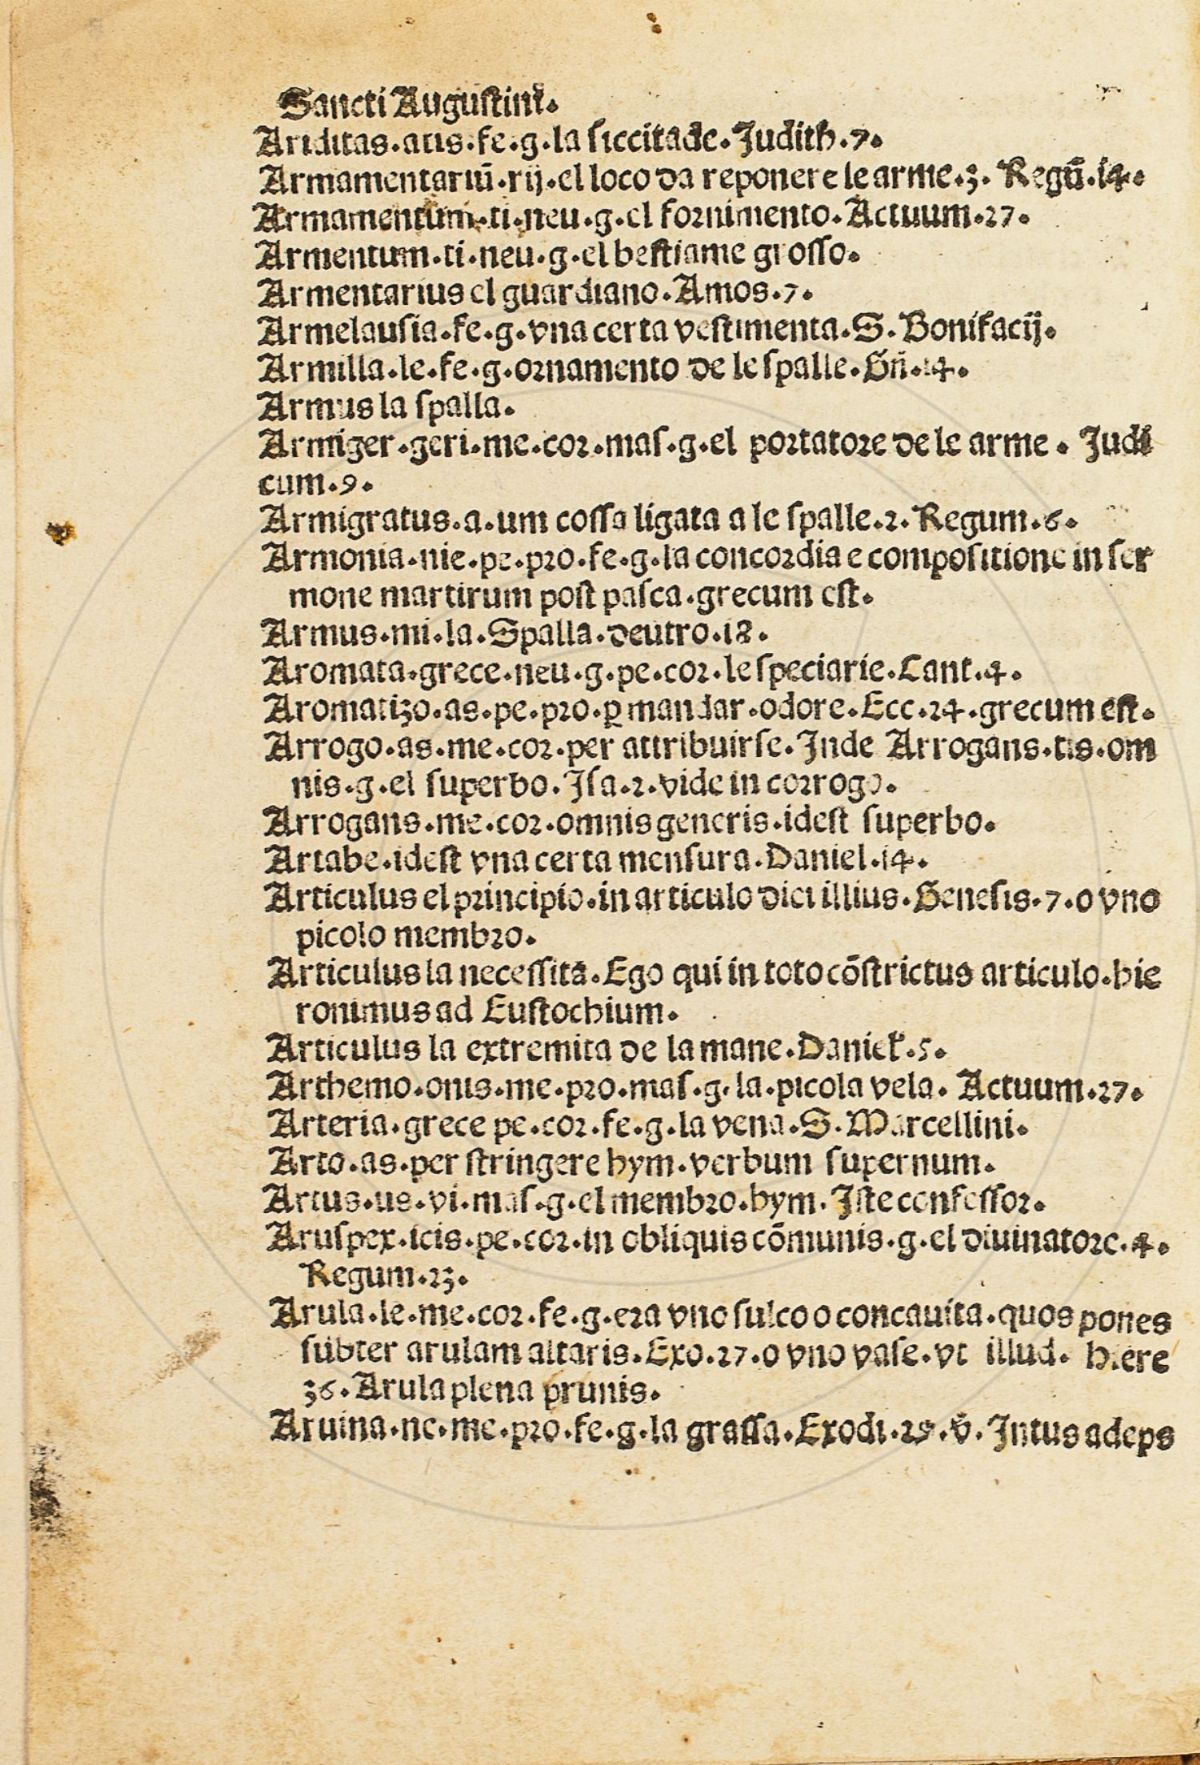 Sancti Augustini.
Ariditas.atis.fe.g.la siccitade.Judith.7.
Armamentariū.rij.el loco da reponere le arme.3. Regū.14.
Armamentum.ti.neu.g.el fornimento.Actuum.27.
Armentum.ti.neu.g.el bestiame grosso.
Armentarius el guardiano.Amos.7.
Armelausia.fe.g.vna certa vestimenta.S. Bonifacij.
Armilla.le.fe.g.ornamento de le spalle.Gñ.14.
Armus la spalla.
Armiger.geri.me.cor.mas.g.el portatore de le arme. Judi
cum.9.
Armigratus.a.um cossa ligata a le spalle.2.Regum.6.
Armonia.nie.pe.pro.fe.g.la concordia e compositione in ser
mone martirum post pasca.grecum est.
Armus.mi.la.Spalla.deutro.18.
Aromata.grece.neu.g.pe.cor.le speciarie.Cant.4.
Aromatizo.as.pe.pro.ꝑ mandar.odore.Ecc.24.grecum est.
Arrogo.as.me.cor.per attribuirse.Inde Arrogans.tis.om
nis.g.el superbo.Isa.2.vide in corrogo.
Arrogans.me.cor.omnis generis.idest superbo.
Artabe.idest vna certa mensura.Daniel.14.
Articulus el principio.in articulo diei illius.Genesis.7.o vno
picolo membro.
Articulus la necessita.Ego qui in toto cōstrictus articulo.hie
ronimus ad Eustochium.
Articulus la extremita de la mane.Daniel.5.
Arthemo.onis.me.pro.mas.g.la.picola vela. Actuum.27.
Arteria.grece pe.cor.fe.g.la vena.S.Marcellini.
Arto.as.per stringere hym.verbum supernum.
Artus.us.vi.mas.g.el membro.hym.Iste confessor.
Aruspex.icis.pe.cor.in obliquis cōmunis.g.el diuinatore.4.
Regum.23.
Arula.le.me.cor.fe.g.era vno sulco o concauita.quos pones
subter arulam altaris.Exo.27.o vno vase.vt illud. hiere
36.Arula plena prunis.
Aruina.ne.me.pro.fe.g.la grassa.Exodi.29.v̄. Intus adeps